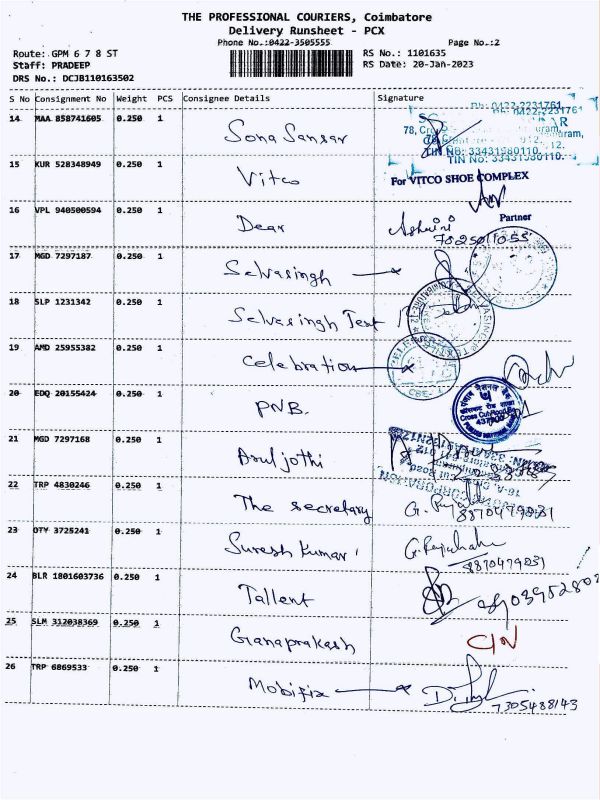 THE PROFESSIONAL COURIERS, Coimbatore
Delivery Runsheet - PCX
Phone No.:0422-3505555 Page No.:2
Route: GPM 6 7 8 ST RS No.: 1101635
Staff: PRADEEP RS Date: 20-Jan-2023
DRS No.: DCJB110163502
S No Consignment No Weight PCS Consignee Details Signature
14 MAA 858741605 0.250 1 Sona Sansar
Ph: 0422-2231761
TIN No: 33431580110
15 KUR 528348949 0.250 1 Vitco
For VITCO SHOE COMPLEX
Partner
16 VPL 940500594 0.250 1 Dear
7825011055
17 MGD 7297187 0.250 1 Selvasingh
18 SLP 1231342 0.250 1 Selvasingh Text
19 AMD 25955382 0.250 1 Celebration
20 EDQ 20155424 0.250 1 PNB.
21 MGD 7297168 0.250 1 Aruljothi
22 TRP 4830246 0.250 1 The secretary
8870479031
23 OTY 3725241 0.250 1 Suresh Kumar
8870479031
24 BLR 1801603736 0.250 1 Tallent
25 SLM 312038369 0.250 1 Gnanaprakash
26 TRP 6869533 0.250 1 Mobifix
7305488143